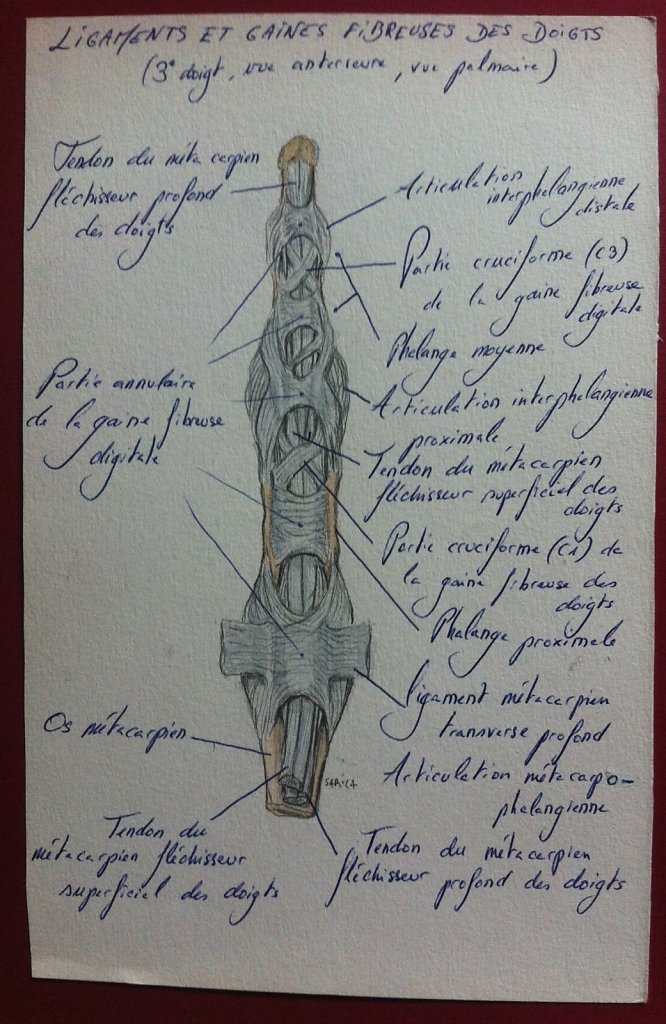 LIGAMENTS ET GAINES FIBREUSES DES DOIGTS
(3e doigt, vue anterieure, vue palmaire)
Tendon du méta carpien
fléchisseur profond
des doigts
Articulation
interphalangienne
distale
Partie cruciforme (C3)
de la gaine fibreuse
digitale
Phalange moyenne
Partie annulaire
de la gaine fibreuse
digitale
Articulation interphalangienne
proximale
Tendon du métacarpien
fléchisseur superficiel des
doigts
Partie cruciforme (C1) de
la gaine fibreuse des
doigts
Phalange proximale
ligament métacarpien
transverse profond
Os métacarpien
Articulation métacarpo-
phalangienne
SARICA
Tendon du
métacarpien fléchisseur
superficiel des doigts
Tendon du métacarpien
fléchisseur profond des doigts